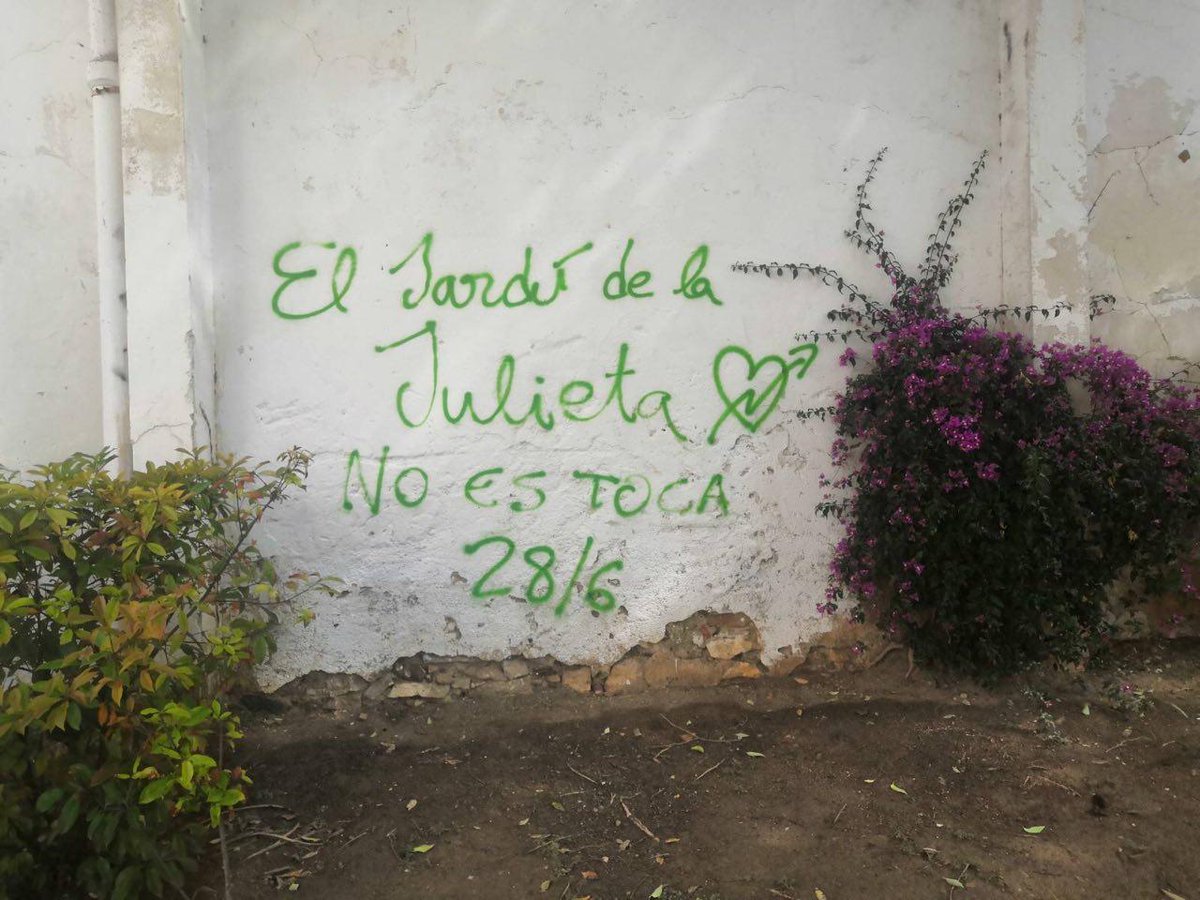 El Jardí de la
Julieta
No es TOCA
28/6